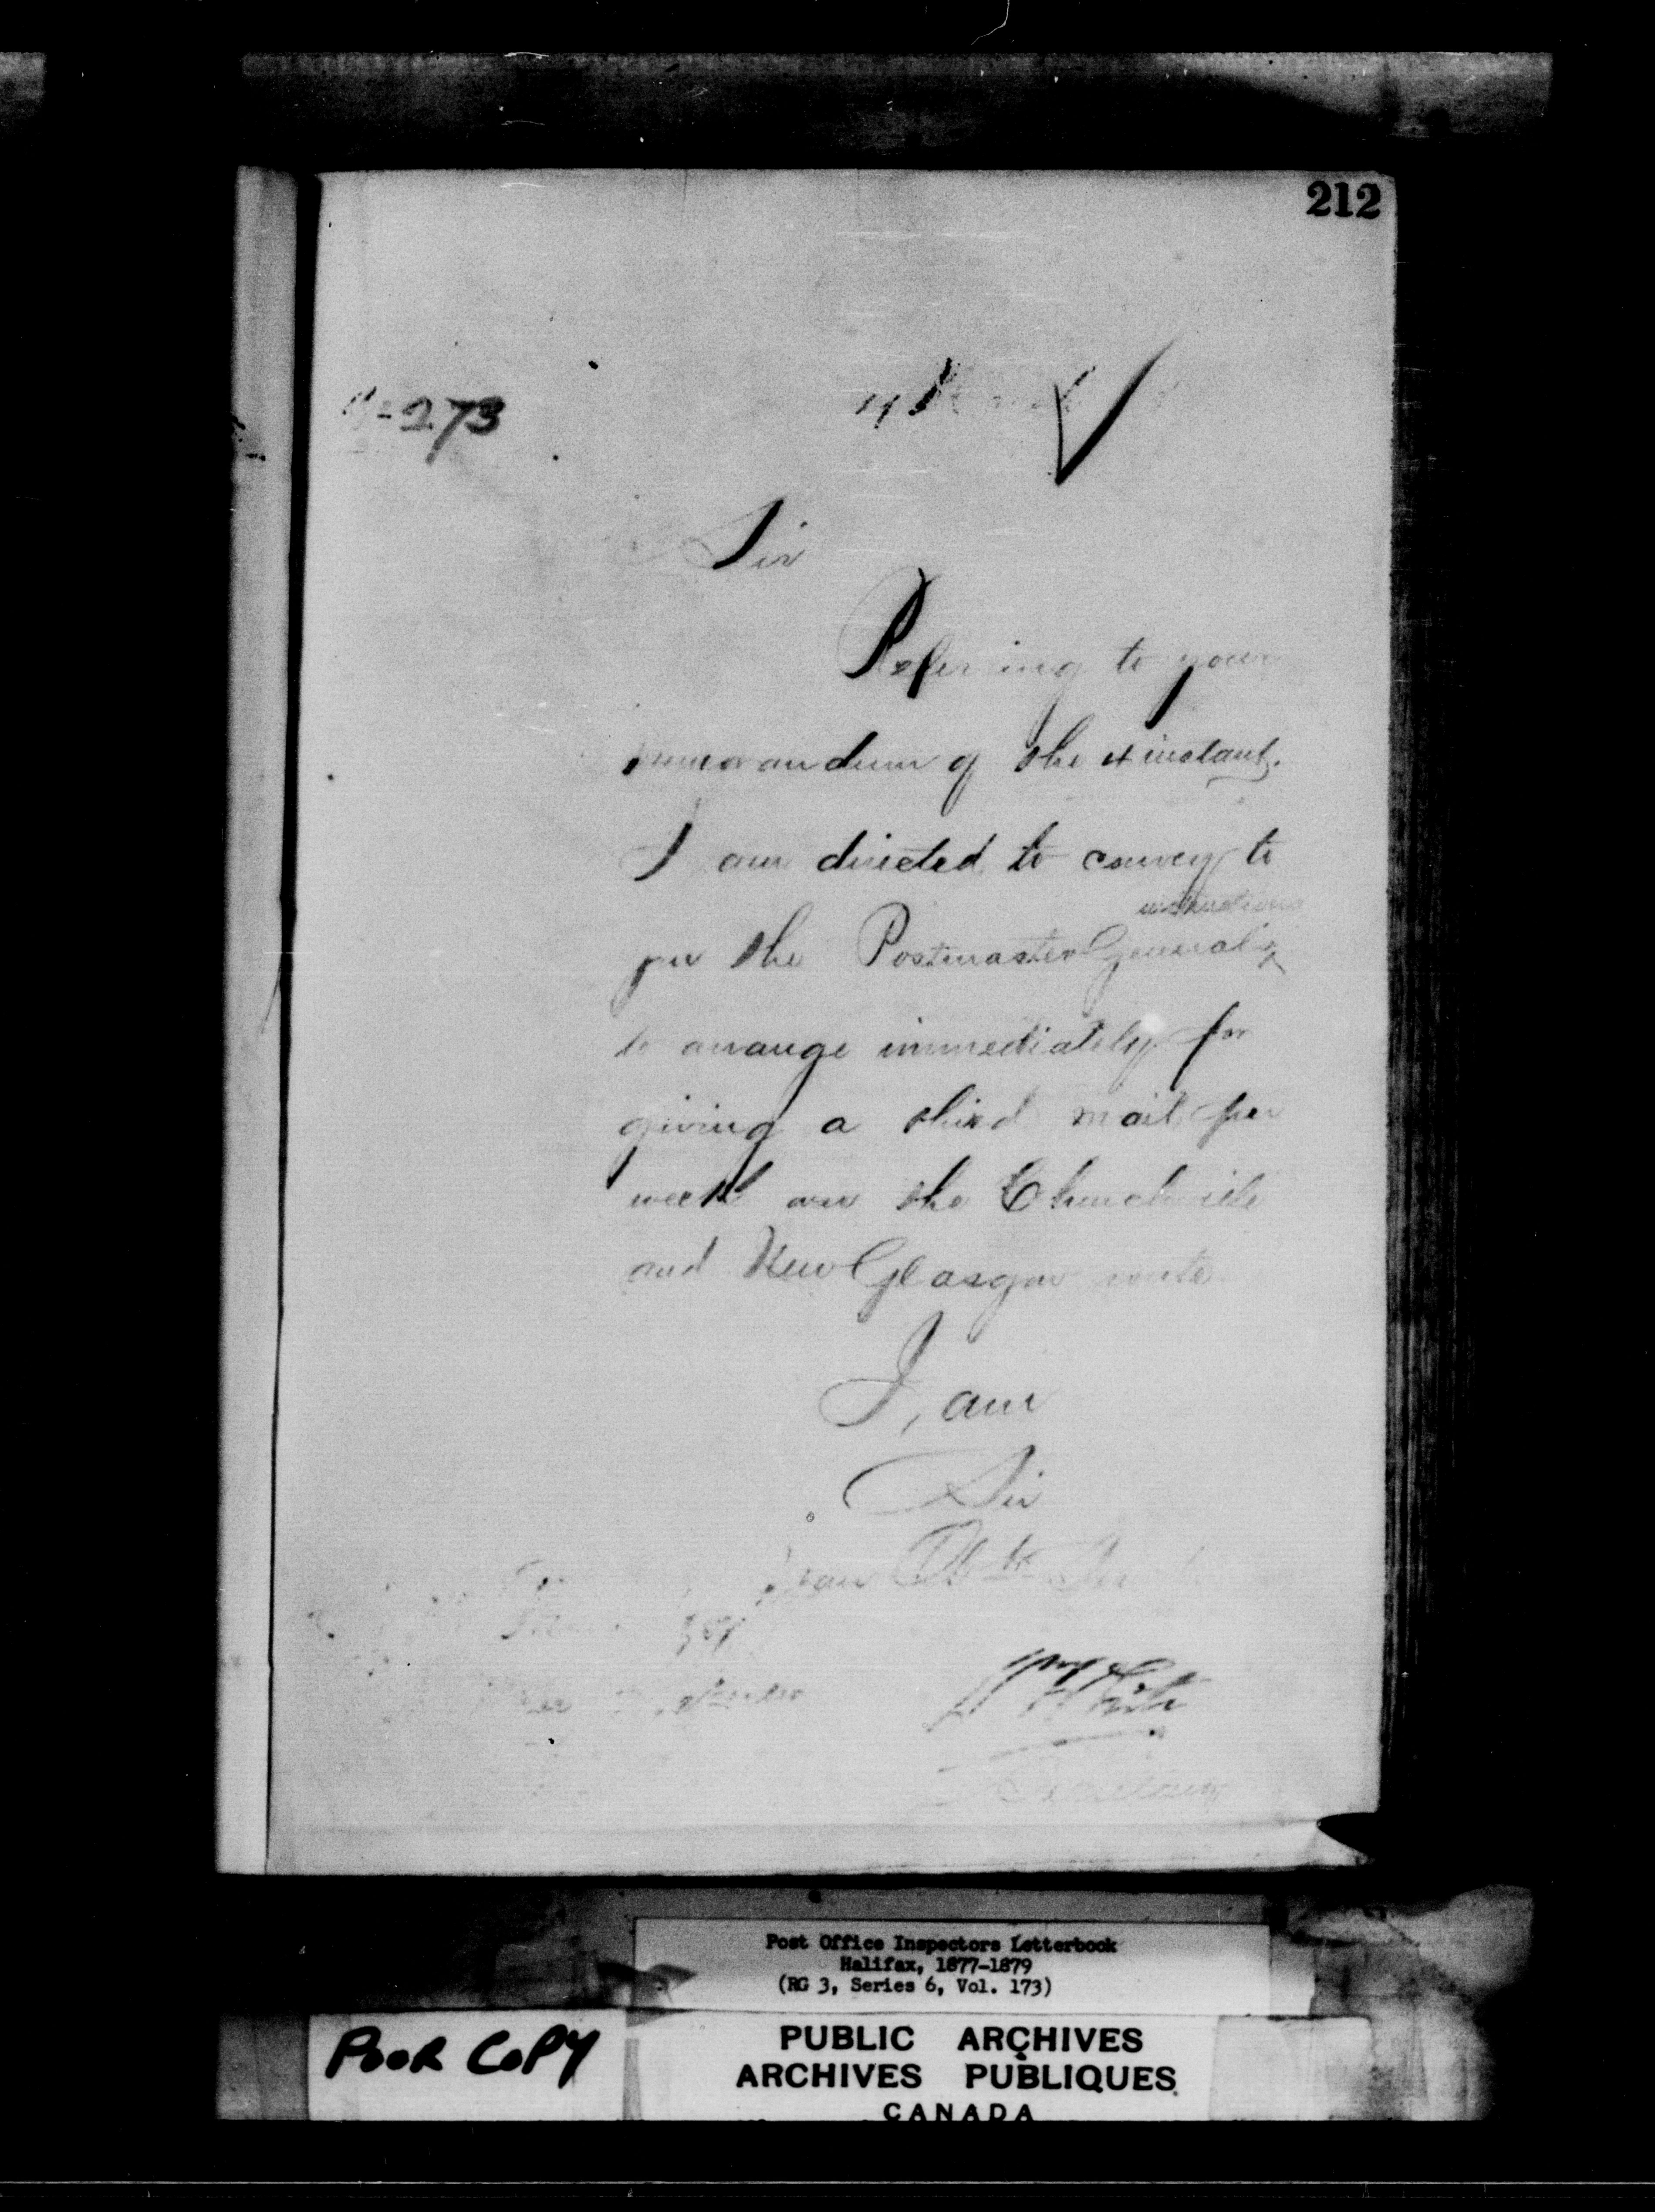 212
273
Sir
Referring to your
memorandum of the 4 instant.
I am directed to convey to
instructions
you the Postmaster General's
to arrange immediately for
giving a third mail per
week on the Churchville
and New Glasgow route
I, am
Sir
Your Obt Ser
Wm White
Secretary
Post Office Inspectors Letterbook
Halifax, 1877-1879
(RG 3, Series 6, Vol. 173)
POOR COPY
PUBLIC ARCHIVES
ARCHIVES PUBLIQUES
CANADA